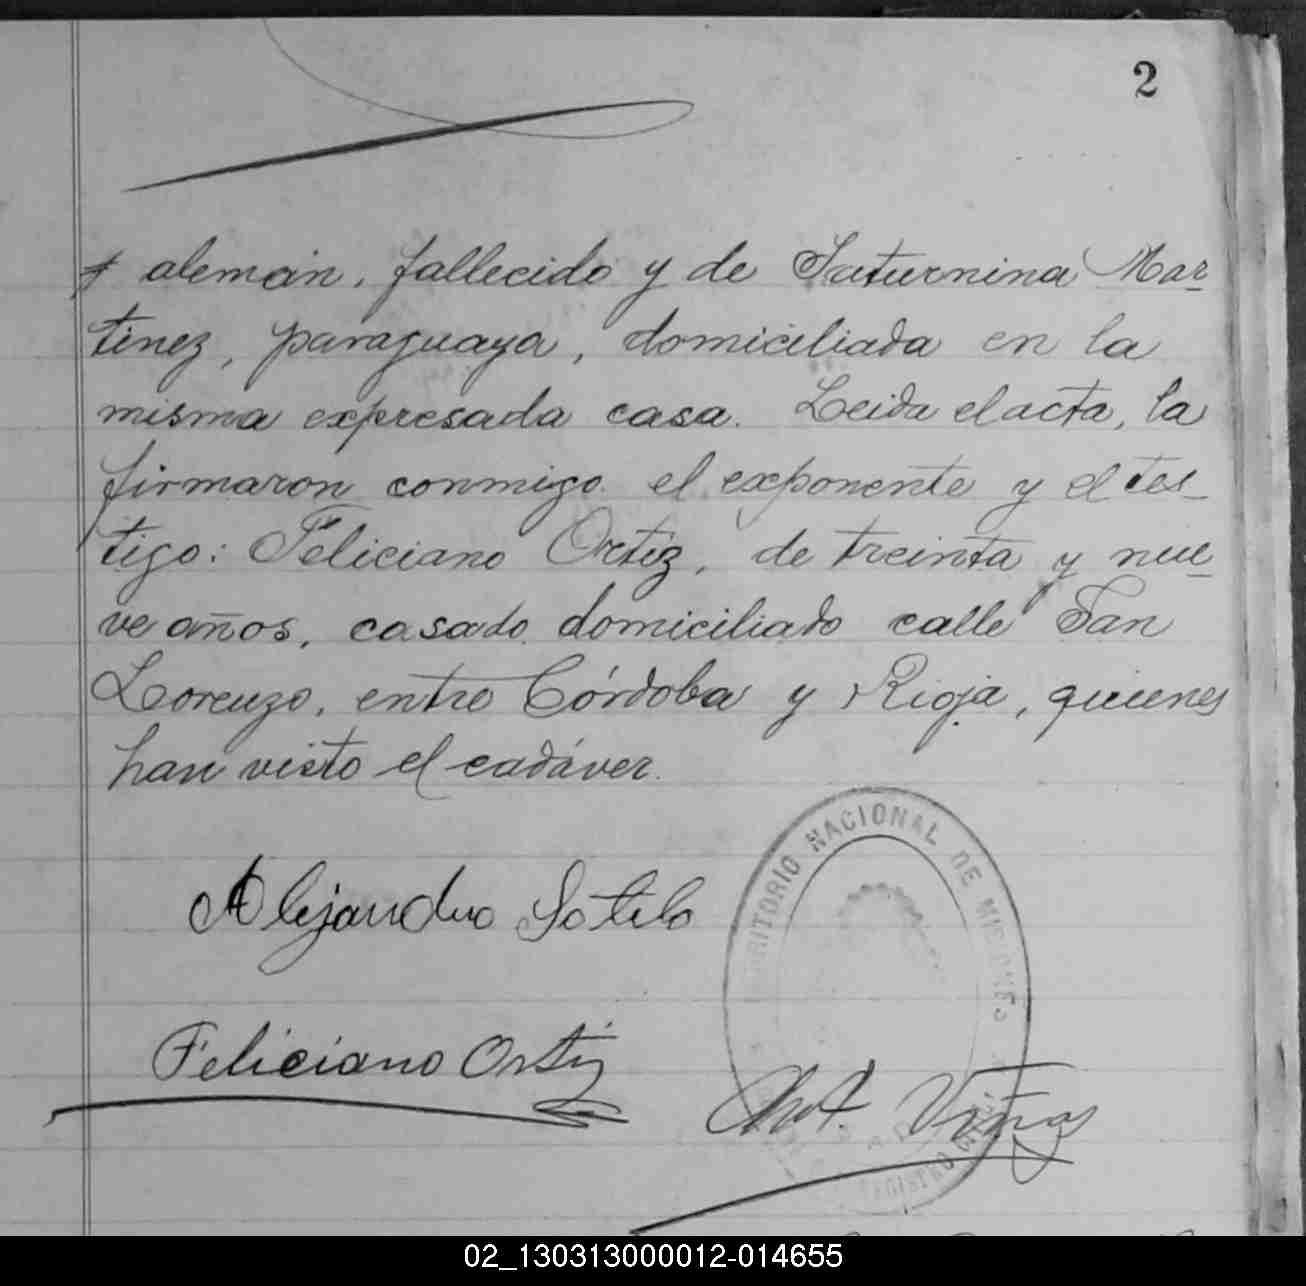 2
alemán, fallecido y de Saturnina Mar-
tinez, paraguaya, domiciliada en la
misma expresada casa. Leida el acta, la
firmaron conmigo el exponente y el tes-
tigo: Feliciano Ortíz, de treinta y nue-
ve años, casado domiciliado calle San
Lorenzo, entre Córdoba y Rioja, quienes
han visto el cadáver.
Alejandro Sotelo
TERRITORIO NACIONAL DE MISIONES
Feliciano Ortiz
Viñas
REGISTRO
02_130313000012-014655